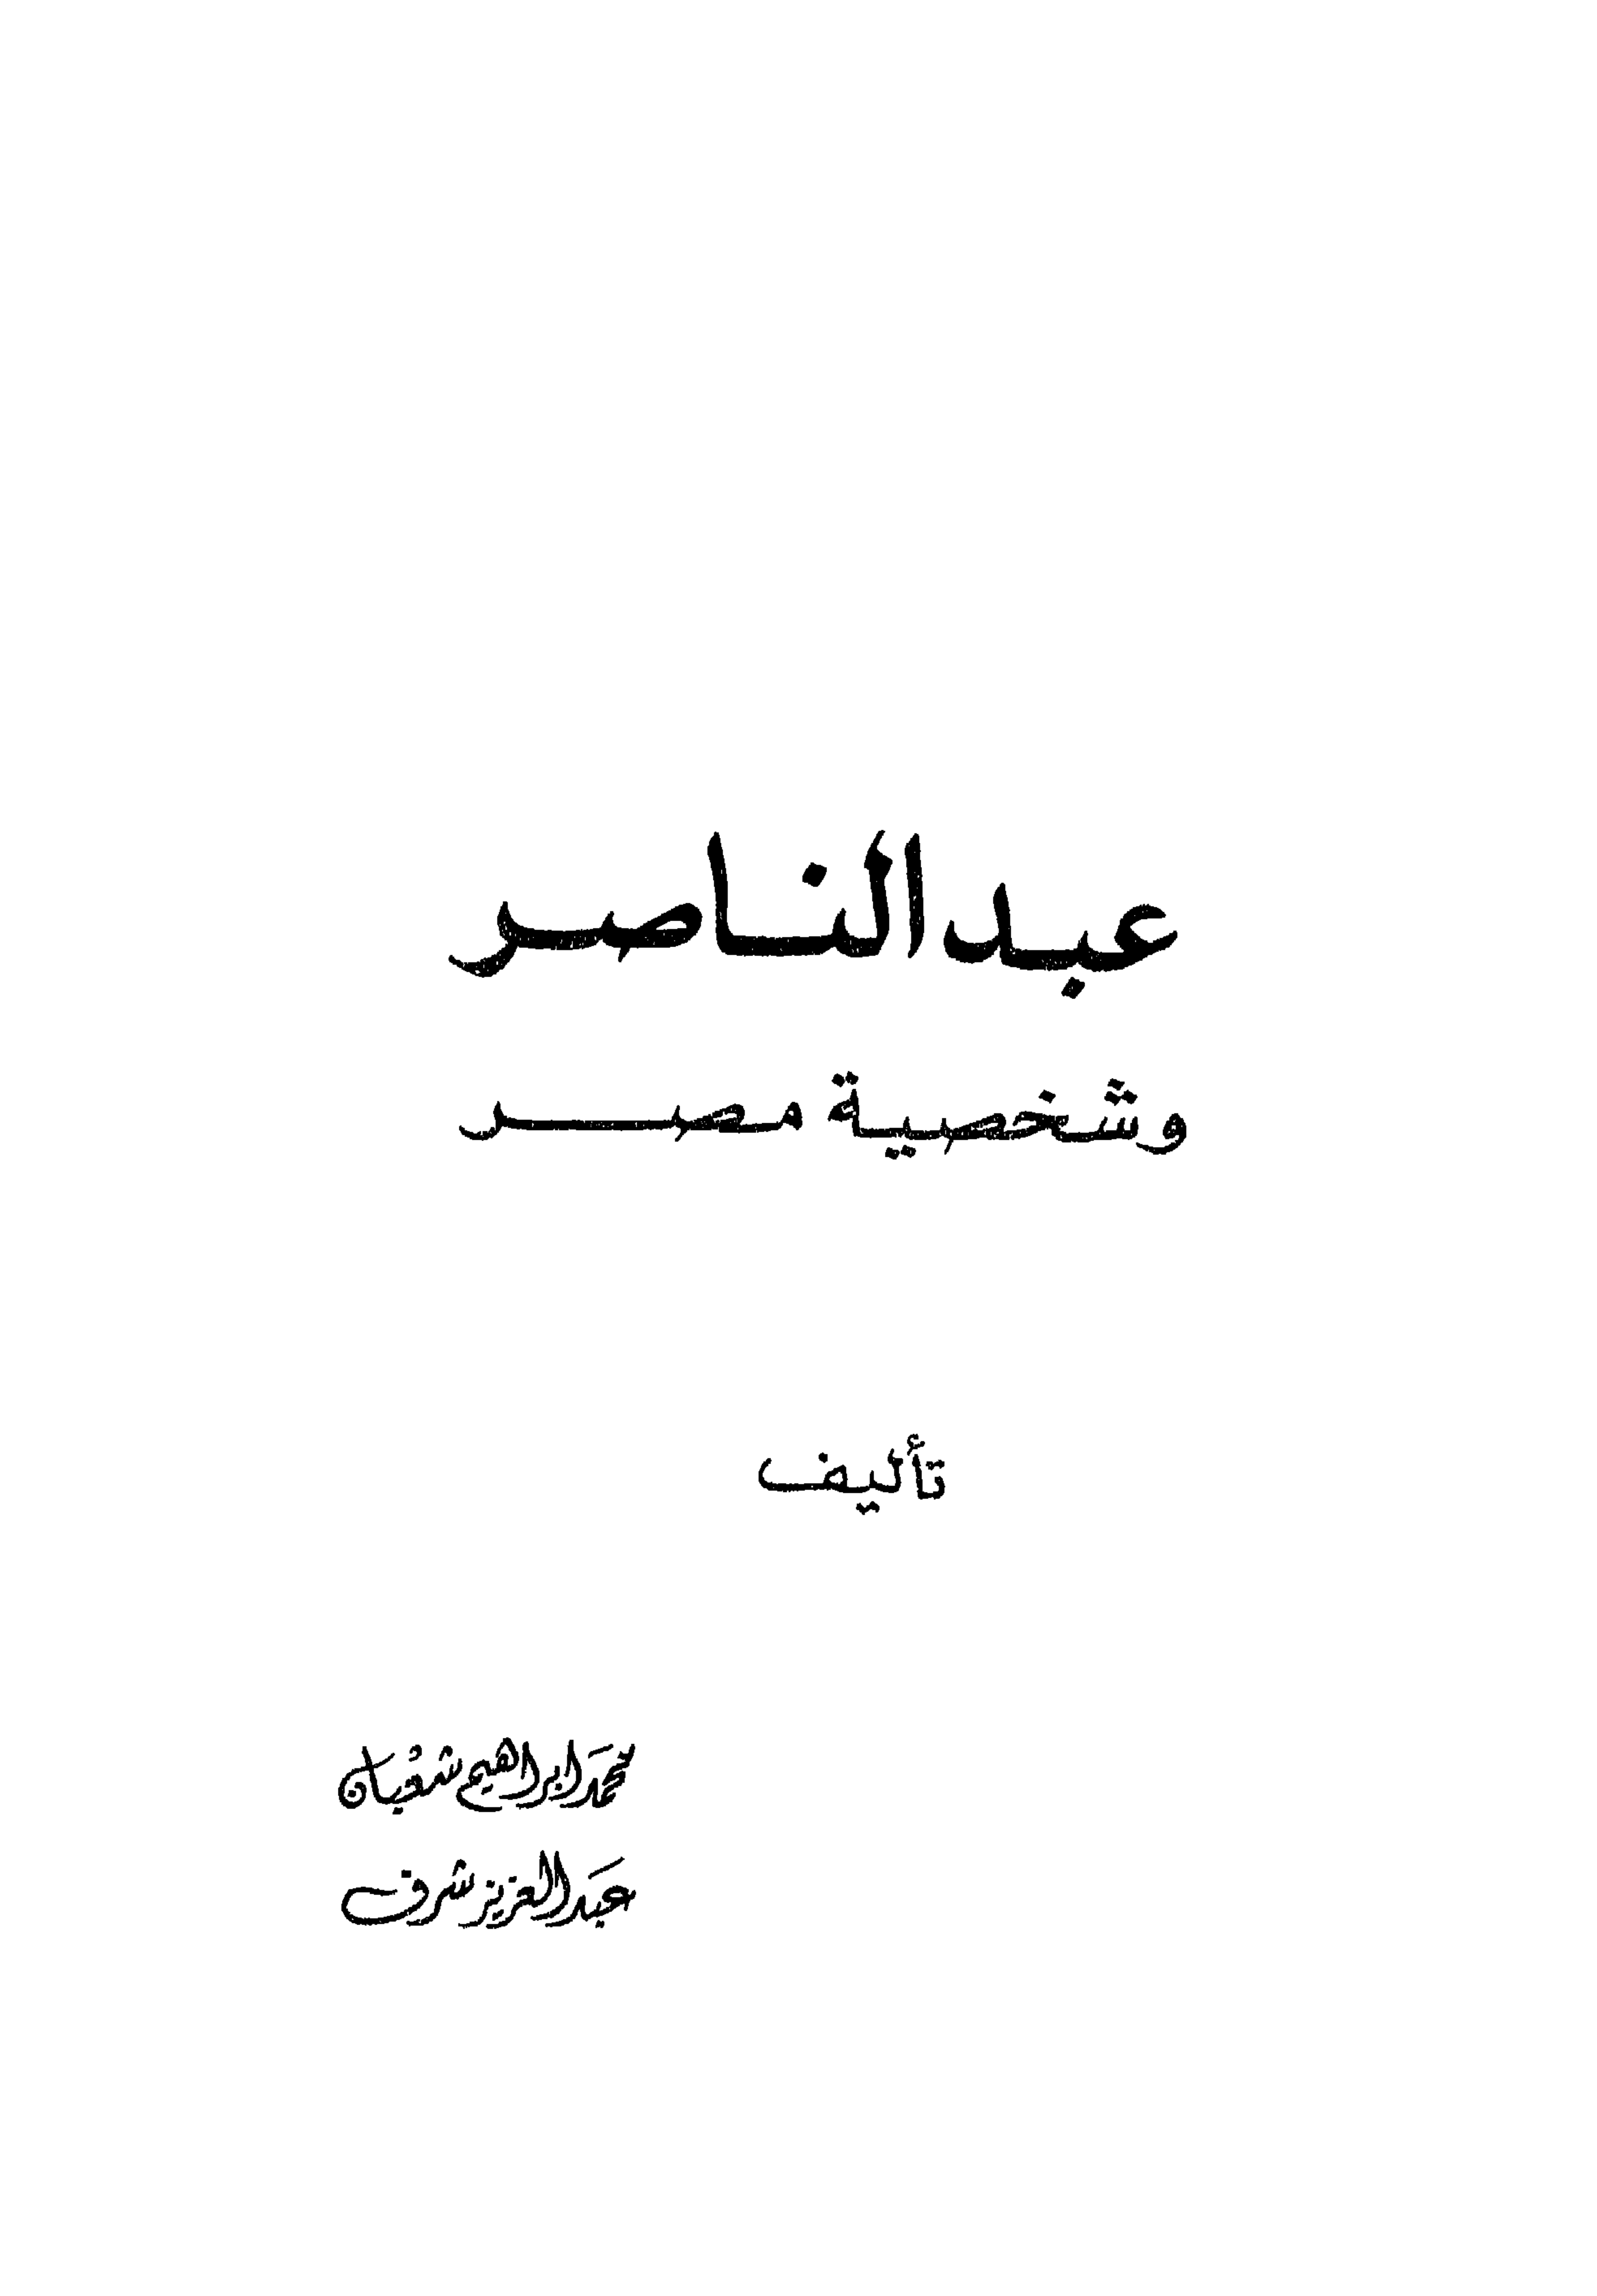 عبد الناصر
وشخصية مصر
تأليف
محمد ابراهيم شعبان
عبد العزيز شرف